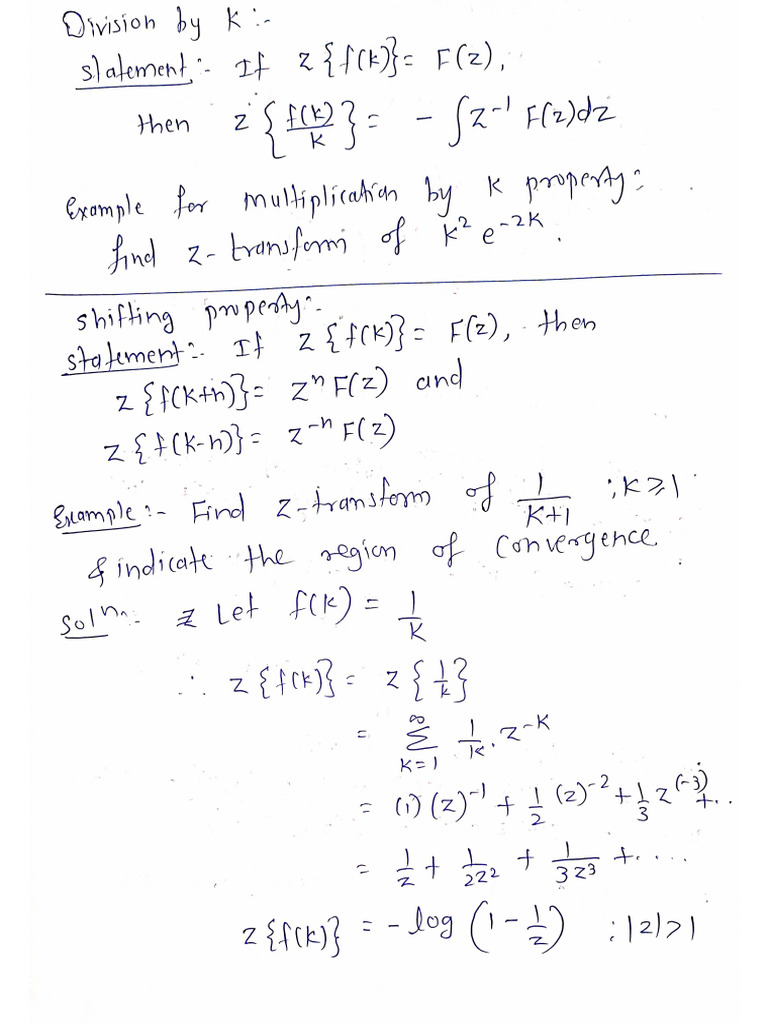 Division by K :-
statement :- If Z{f(k)} = F(z),
then Z{f(k)/K} = - ∫z⁻¹ F(z)dz
Example for multiplication by K property :-
find z-transform of k² e^-2K.
shifting property:-
statement:- If Z{f(k)} = F(z), then
Z{f(k+n)} = zⁿ F(z) and
Z{f(k-n)} = z⁻ⁿ F(z)
Example :- Find z-transform of 1/(K+1) ; k ⩾ 1
& indicate the region of convergence.
Solⁿ:- Let f(k) = 1/K
∴ Z{f(k)} = Z{1/k}
= ∞Σk=1 1/k . z^-K
= (1)(z)⁻¹ + 1/2 (z)⁻² + 1/3 z^(-3) + ..
= 1/z + 1/2z² + 1/3z³ + ....
Z{f(k)} = - log (1 - 1/z) ; |z| > 1